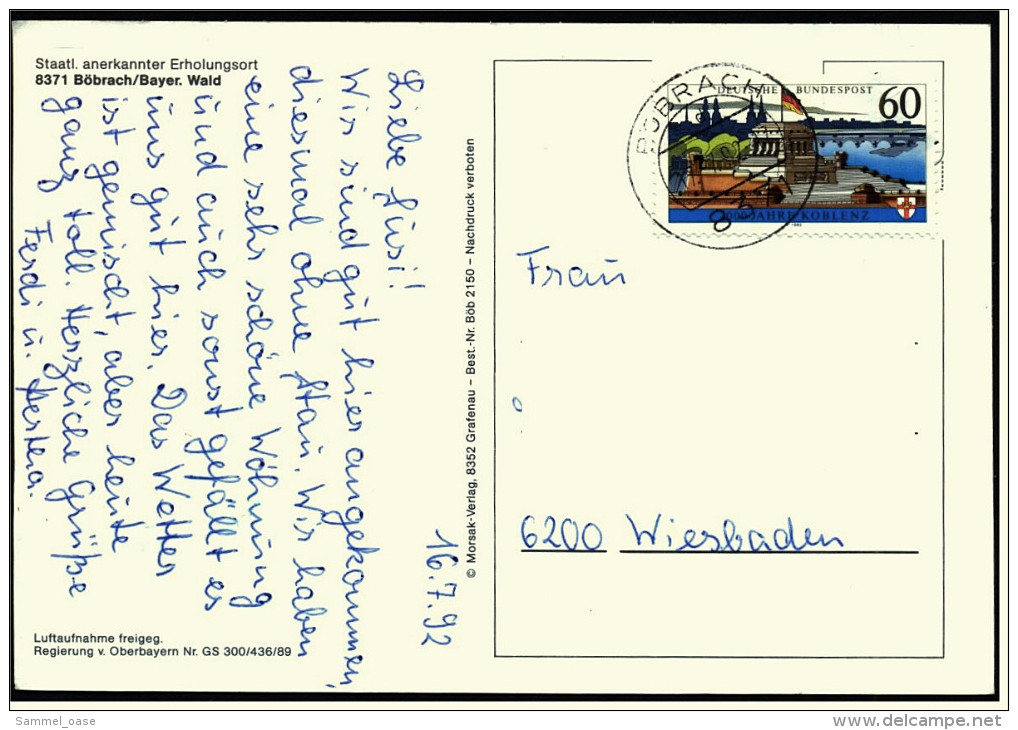 Staatl. anerkannter Erholungsort
8371 Böbrach/Bayer. Wald
16.7.92
Liebe Susi!
Wir sind gut hier angekommen,
diesmal ohne Stau. Wir haben
eine sehr schöne Wohnung
und auch sonst gefällt es
uns gut hier. Das Wetter
ist gemischt, aber heute
ganz toll. Herzliche Grüße
Ferdi u. Hertha.
Luftaufnahme freigeg.
Regierung v. Oberbayern Nr. GS 300/436/89
© Morsak-Verlag, 8352 Grafenau – Best.-Nr. Böb 2150 – Nachdruck verboten
BÖBRACH
DEUTSCHE BUNDESPOST
60
2000 JAHRE KOBLENZ
Frau
6200 Wiesbaden
Sammel_oase
www.delcampe.net